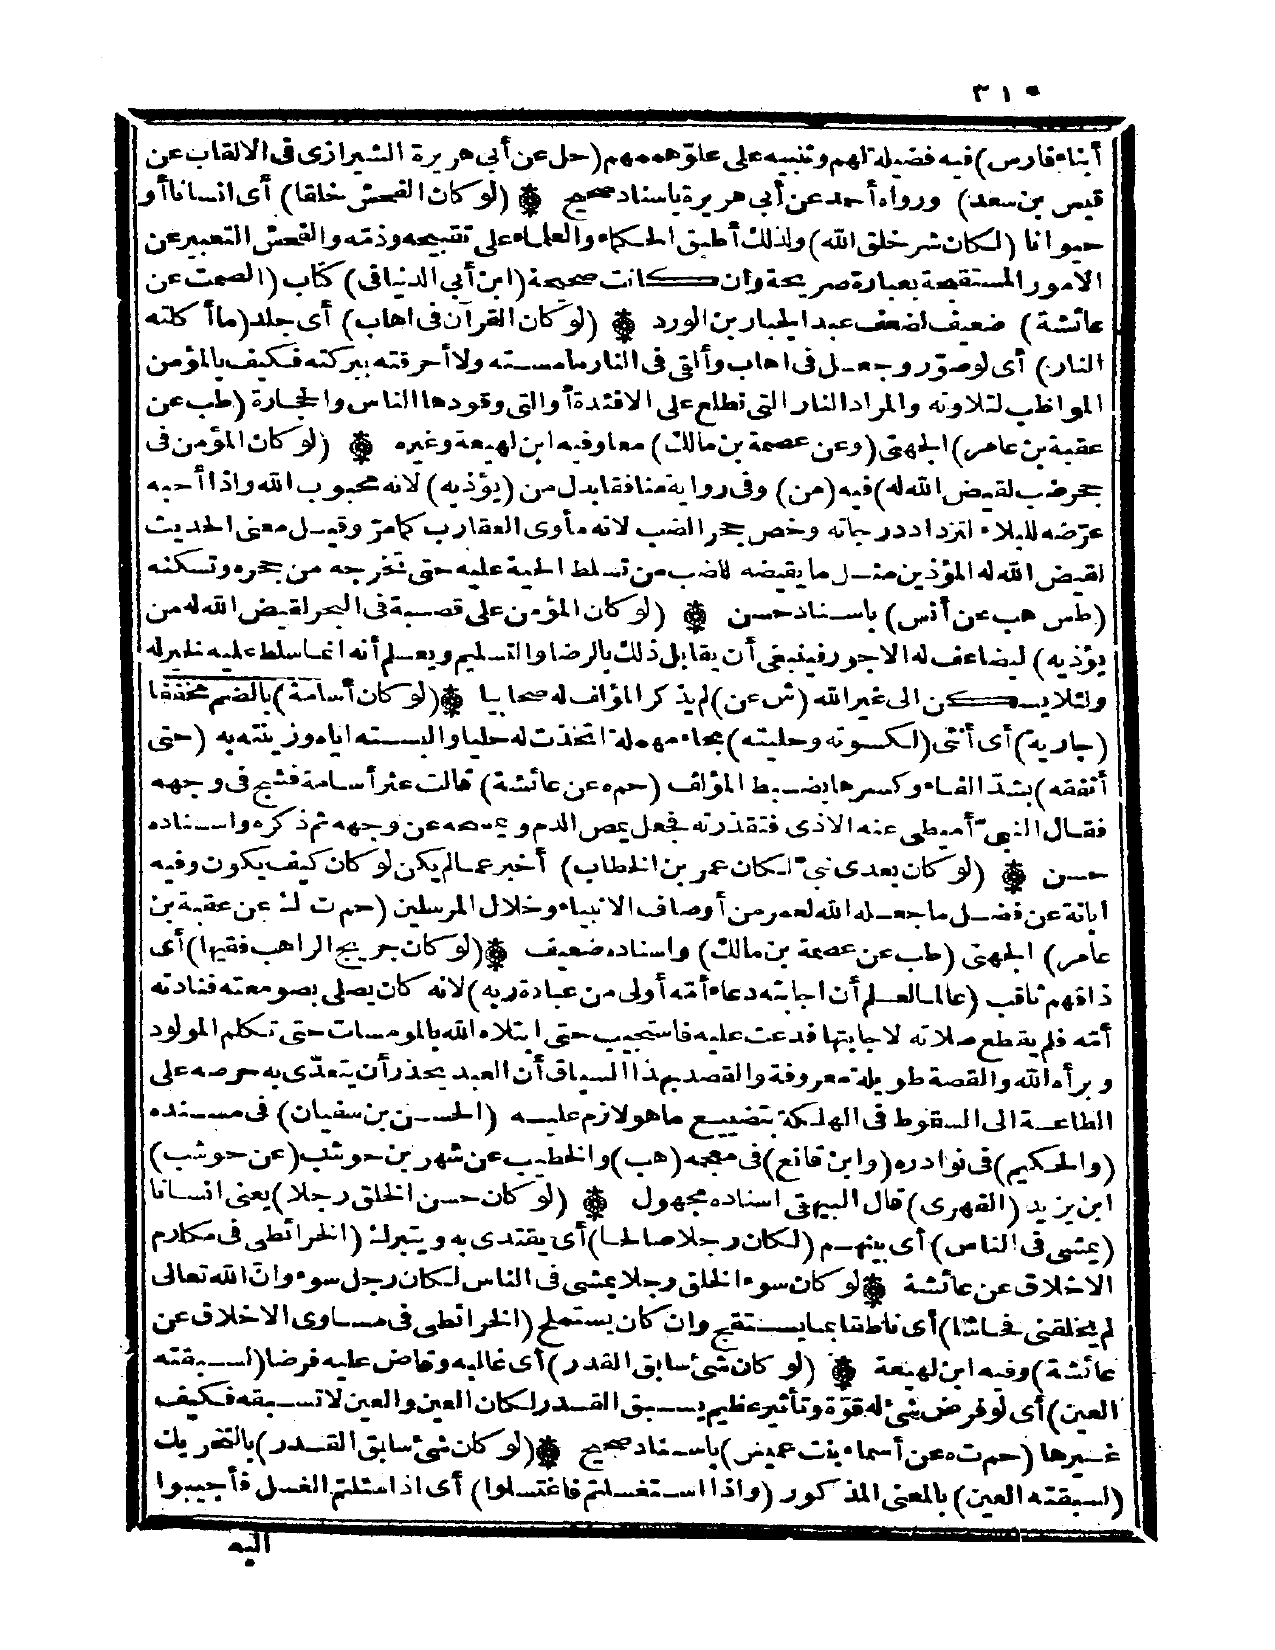 ٣١٠
أبناء فارس) فيه فضيلة لهم وتنبيه على علوّ هممهم (حل عن أبي هريرة الشيرازى فى الالقاب عن
قيس بن سعد) ورواه أحمد عن أبي هريرة باسناد صحيح ۞ (لو كان الفحش خلقا) أى انسانا أو
حيوانا (لكان شر خلق الله) ولذلك أطبق الحكماء والعلماء على تقبيحه وذمّه والفحش التعبير عن
الامور المستقبحة بعبارة صريحة وان كانت صحيحة (ابن أبي الدنيا فى) كتاب (الصمت عن
عائشة) ضعيف لضعف عبد الجبار بن الورد ۞ (لو كان القرآن فى اهاب) أى جلد (ما أكلته
النار) أى لو صوّر وجعل فى اهاب وألقى فى النار ما مسته ولا أحرقته ببركته فكيف بالمؤمن
المواظب لتلاوته والمراد النار التى تطلع على الافئدة أو التى وقودها الناس والحجارة (طب عن
عقبة بن عامر) الجهنى (وعن عصمة بن مالك) معا وفيه ابن لهيعة وغيره ۞ (لو كان المؤمن فى
جحر ضب لقيض الله له) فيه (من) وفى رواية منافقا بدل من (يؤذيه) لانه محبوب الله واذا أحبه
عرّضه للبلاء لتزداد درجاته وخص جحر الضب لانه مأوى العقارب كما مرّ وقيل معنى الحديث
لقيض الله له المؤذين مثل ما يقيضه للضب من تسلط الحية عليه حتى تخرجه من جحره وتسكنه
(طس هب عن أنس) باسناد حسن ۞ (لو كان المؤمن على قصبة فى البحر لقيض الله له من
يؤذيه) ليضاعف له الاجور فينبغى أن يقابل ذلك بالرضا والتسليم ويعلم أنه انما سلط عليه لخير له
ولئلا يسكن الى غير الله (ش عن) لم يذكر المؤلف له صحابيا ۞ (لو كان أسامة) بالضم مخففا
(جارية) أى أنثى (لكسوته وحليته) بحاء مهملة اتخذت له حليا وألبسته اياه وزينته به (حتى
أنفقه) بشدّ الفاء وكسرها بضبط المؤلف (حم ه عن عائشة) قالت عثر أسامة فشج فى وجهه
فقال النبي أميطى عنه الاذى فتقذرته فجعل يمص الدم ويمجه عن وجهه ثم ذكره واسناده
حسن ۞ (لو كان بعدى نبي لكان عمر بن الخطاب) أخبر عما لم يكن لو كان كيف يكون وفيه
ابانة عن فضل ما جعله الله لعمر من أوصاف الانبياء وخلال المرسلين (حم ت ك عن عقبة بن
عامر) الجهنى (طب عن عصمة بن مالك) واسناده ضعيف ۞ (لو كان جريج الراهب فقيها) أى
ذا فهم ثاقب (عالما لعلم أن اجابته دعاء أمّه أولى من عبادة ربه) لانه كان يصلى بصومعته فنادته
أمّه فلم يقطع صلاته لاجابتها فدعت عليه فاستجيب حتى ابتلاه الله بالمومسات حتى تكلم المولود
وبرأه الله والقصة طويلة معروفة والقصد بهذا السياق أن العبد يحذر أن يتعدّى به حرصه على
الطاعة الى السقوط فى الهلكة بتضييع ما هو لازم عليه (الحسن بن سفيان) فى مسنده
(والحكيم) فى نوادره (وابن قانع) فى معجمه (هب) والخطيب عن شهر بن حوشب (عن حوشب)
ابن يزيد (الفهرى) قال البيهقى اسناده مجهول ۞ (لو كان حسن الخلق رجلا) يعنى انسانا
(يمشى فى الناس) أى بينهم (لكان رجلا صالحا) أى يقتدى به ويتبرك (الخرائطى فى مكارم
الاخلاق عن عائشة ۞ لو كان سوء الخلق رجلا يمشى فى الناس لكان رجل سوء وانّ الله تعالى
لم يخلقنى فحاشا) أى ناطقا بما يستقبح وان كان يستملح (الخرائطى فى مساوى الاخلاق عن
عائشة) وفيه ابن لهيعة ۞ (لو كان شئ سابق القدر) أى غالبه وقاض عليه فرضا (لسبقته
العين) أى لو فرض شئ له قوّة وتأثير عظيم يسبق القدر لكان العين والعين لا تسبقه فكيف
غيرها (حم ت ه عن أسماء بنت عميس) باسناد صحيح ۞ (لو كان شئ سابق القدر) بالتحريك
(لسبقته العين) بالمعنى المذكور (واذا استغسلتم فاغتسلوا) أى اذا سئلتم الغسل فأجيبوا
اليه